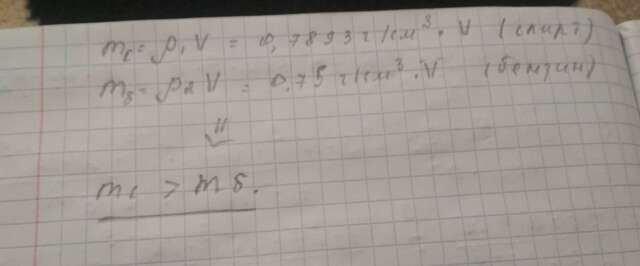 m₁ = ρ₁V = 0,7893 г/см³ · V (спирт)
mб = ρ₂V = 0,75 г/см³ · V (бензин)
⇓
m₁ > mб.